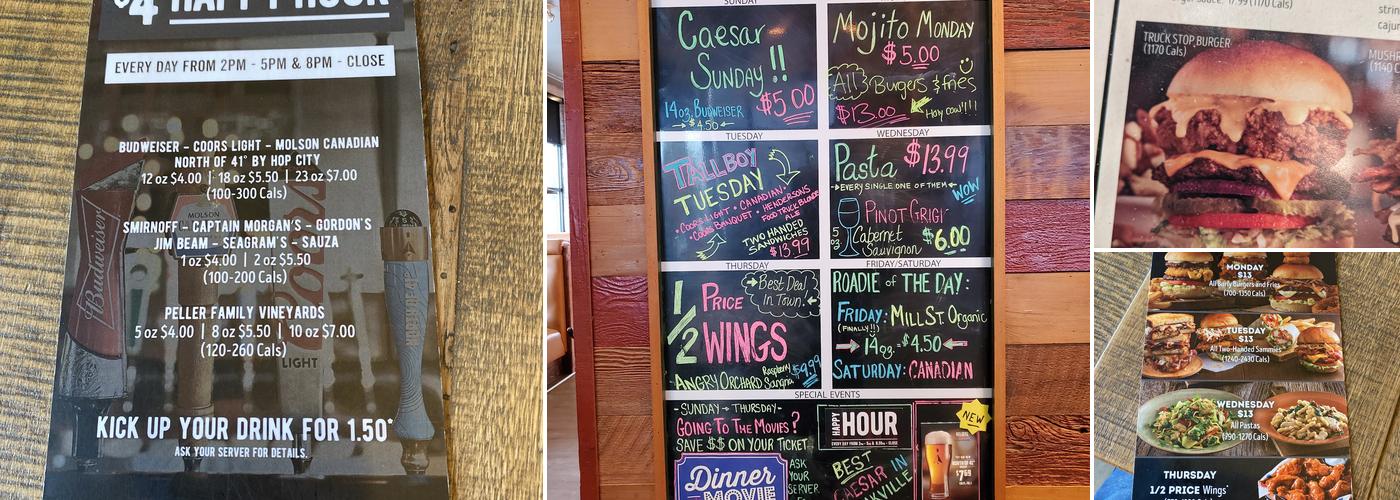 $4 HAPPY HOUR
EVERY DAY FROM 2PM - 5PM & 8PM - CLOSE
BUDWEISER - COORS LIGHT - MOLSON CANADIAN
NORTH OF 41° BY HOP CITY
12 oz $4.00 | 18 oz $5.50 | 23 oz $7.00
(100-300 Cals)
SMIRNOFF - CAPTAIN MORGAN'S - GORDON'S
JIM BEAM - SEAGRAM'S - SAUZA
1 oz $4.00 | 2 oz $5.50
(100-200 Cals)
PELLER FAMILY VINEYARDS
5 oz $4.00 | 8 oz $5.50 | 10 oz $7.00
(120-260 Cals)
KICK UP YOUR DRINK FOR 1.50*
ASK YOUR SERVER FOR DETAILS.
Budweiser
MOLSON
Coors
LIGHT
SUNDAY
Caesar
Sunday!!
$5.00
14oz. Budweiser
$4.50
Mojito Monday
$5.00
All Burgers & fries
$13.00
Holy cow!!!
TUESDAY
TALLBOY
TUESDAY
•Coors Light •Canadian
•Coors Banquet •Hendersons
Food Truck Blonde
Ale
Two Handed
Sandwiches
$13.99
WEDNESDAY
Pasta $13.99
Every single one of them
WOW
5
oz
Pinot Grigi
Cabernet
Sauvignon
$6.00
THURSDAY
1/2 Price
WINGS
Best Deal
In Town!
Angry Orchard
Raspberry
Sangria
$9.99
FRIDAY/SATURDAY
Roadie of the Day:
Friday: Mill St. Organic
(Finally!!)
14oz. $4.50
Saturday: Canadian
SPECIAL EVENTS
-Sunday - Thursday-
Going To the Movies?
Save $$ on your ticket
Dinner
MOVIE
Ask
your
server
HAPPY
HOUR
Best
Caesar in
NEW
$7.69
TRUCK STOP BURGER
(1170 Cals)
MUSHR
(1140 C
sauce. 17.99 (1170 Cals)
strin
cajur
MONDAY
$13
All Barly Burgers and Fries
(700-1350 Cals)
TUESDAY
$13
All Two-Handed Sammies
(1240-2430 Cals)
WEDNESDAY
$13
All Pastas
(790-1270 Cals)
THURSDAY
1/2 PRICE Wings*